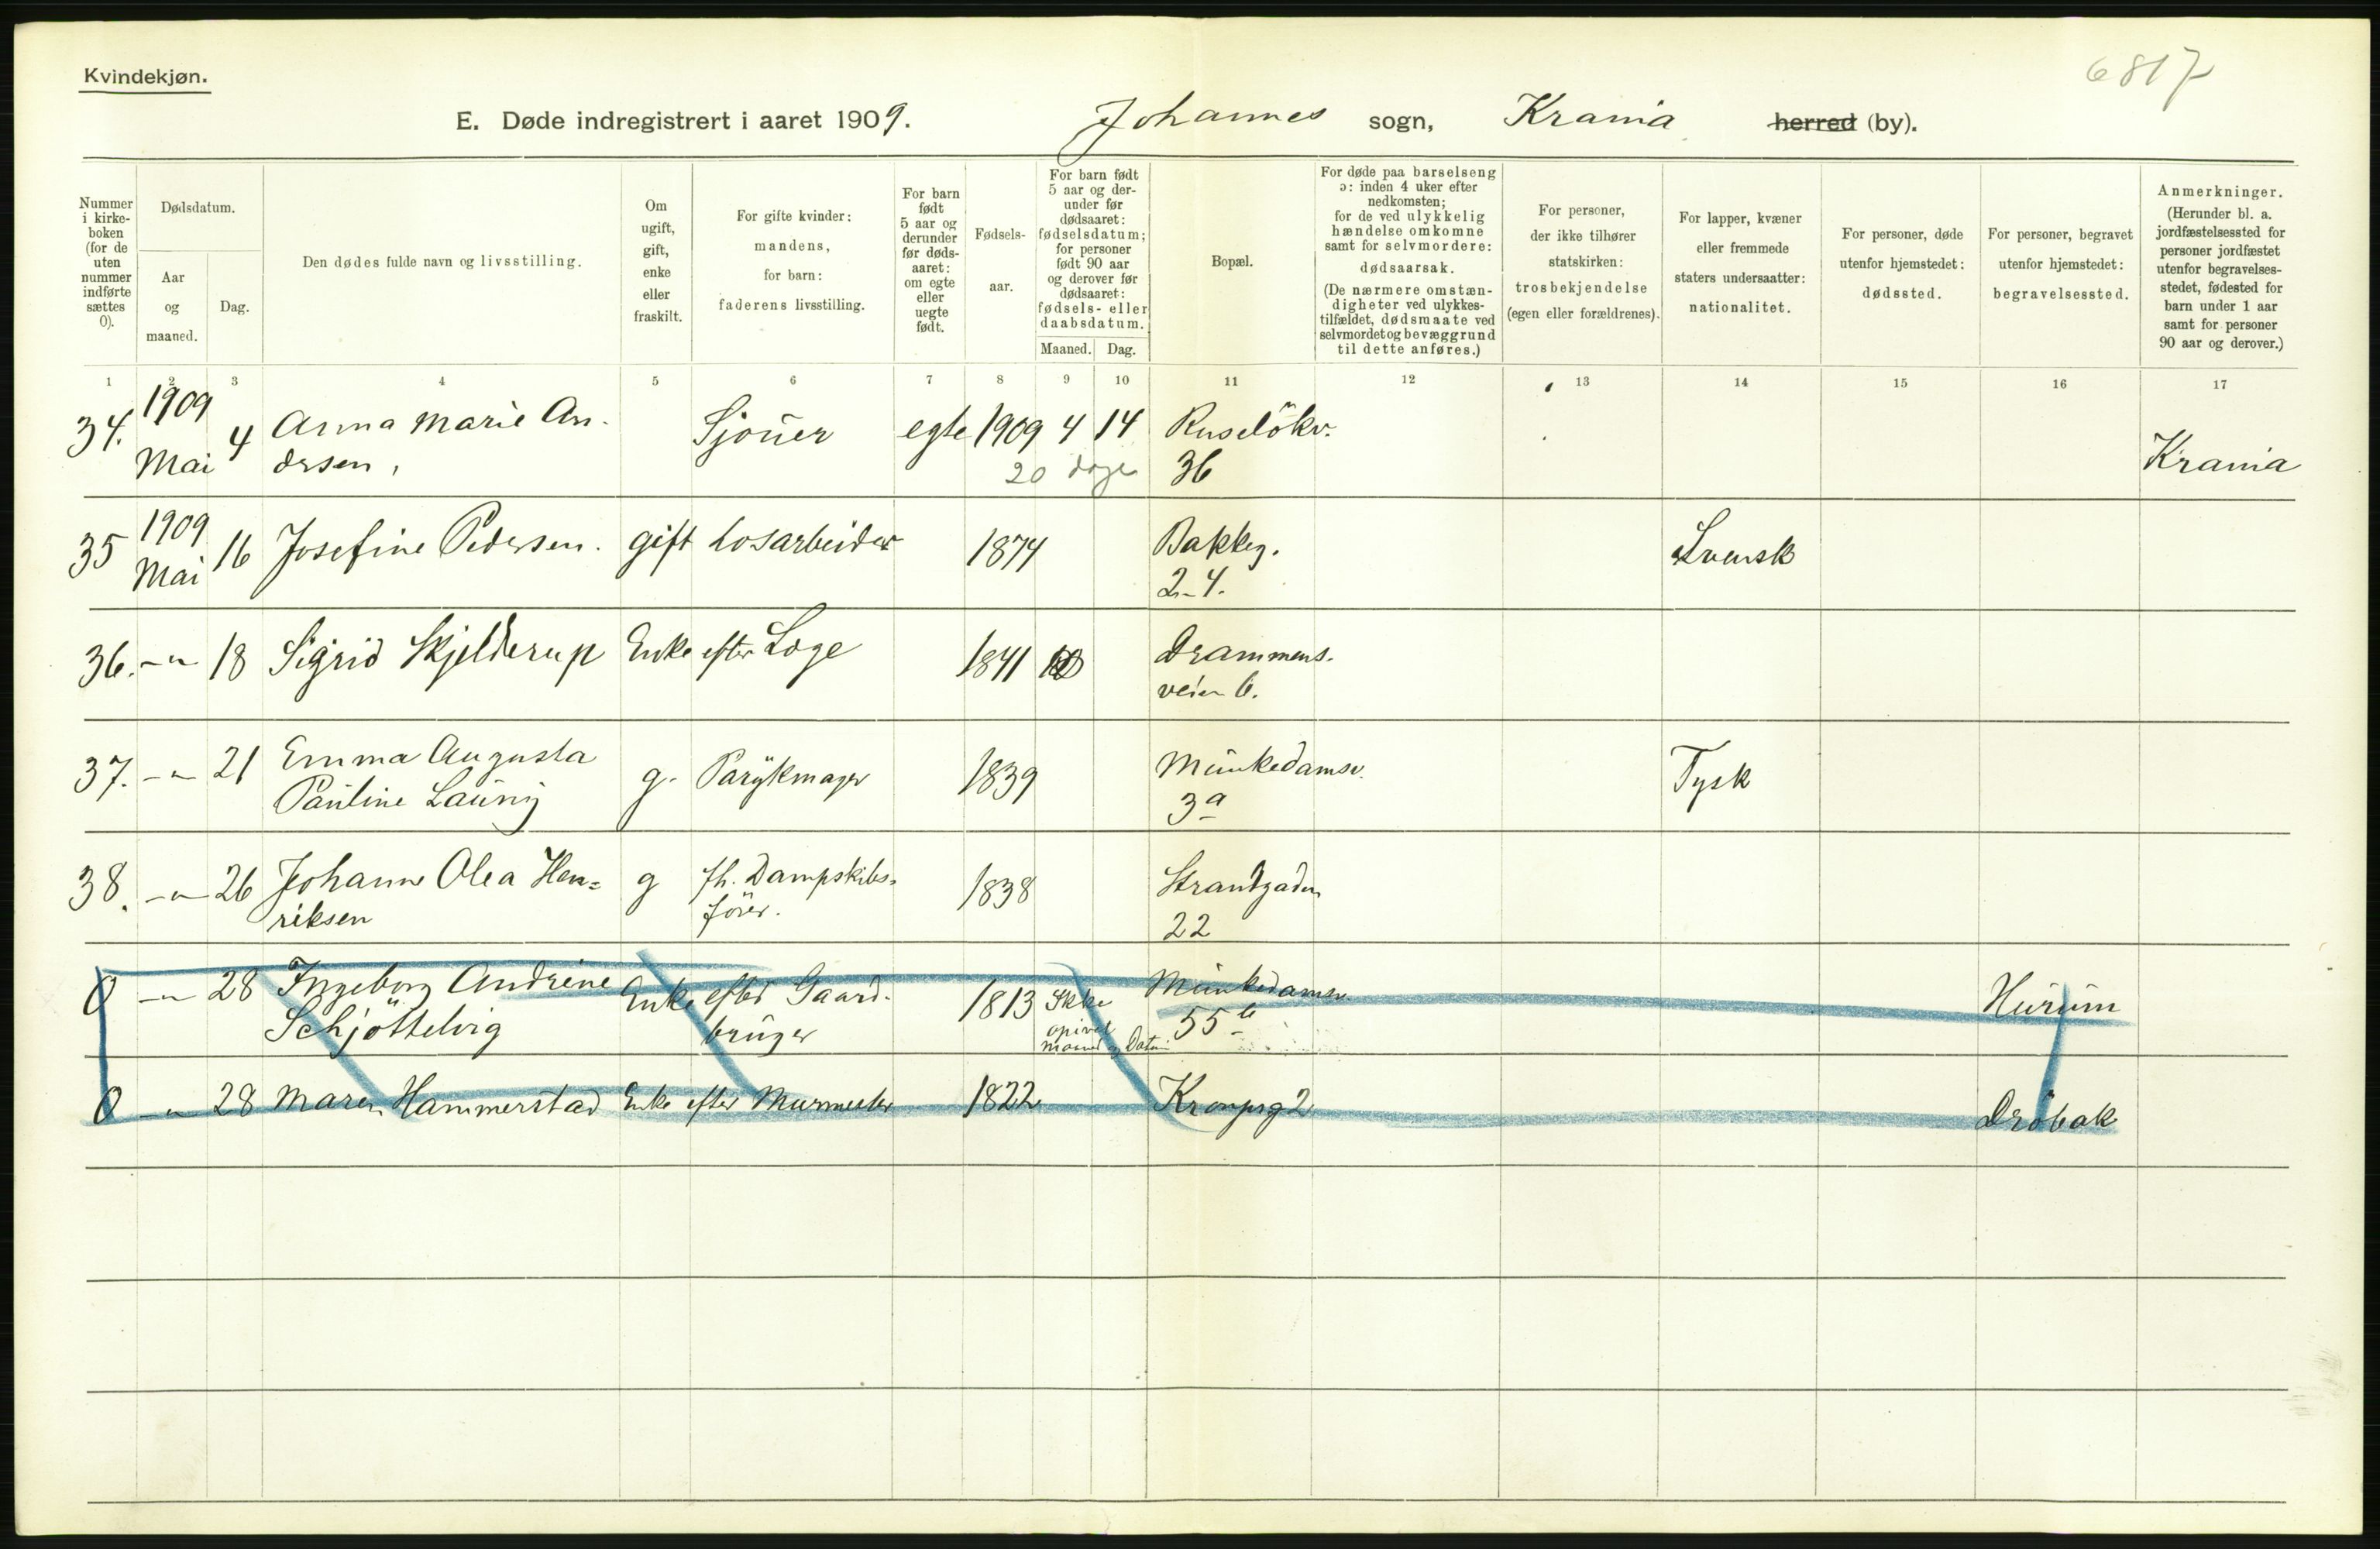 Kvindekjøn.
6817
E. Døde indregistrert i aaret 1909. Johannes sogn, Krania herred (by).
Nummer i kirke- boken (for de uten nummer indførte sættes 0).
Dødsdatum.
Aar og maaned.
Dag.
Den dødes fulde navn og livsstilling.
Om ugift, gift, enke eller fraskilt.
For gifte kvinder: mandens, for barn: faderens livsstilling.
For barn født 5 aar og derunder før døds- aaret: om egte eller uegte født.
Fødsels- aar.
For barn født 5 aar og der- under før dødsaaret: fødselsdatum; for personer født 90 aar og derover før dødsaaret: fødsels- eller daabsdatum.
Maaned. Dag.
Bopæl.
For døde paa barselseng ɔ: inden 4 uker efter nedkomsten; for de ved ulykkelig hændelse omkomne samt for selvmordere: dødsaarsak. (De nærmere omstæn- digheter ved ulykkes- tilfældet, dødsmaate ved selvmordet og bevæggrund til dette anføres.)
For personer, der ikke tilhører statskirken: trosbekjendelse (egen eller forældrenes).
For lapper, kvæner eller fremmede staters undersaatter: nationalitet.
For personer, døde utenfor hjemstedet: dødssted.
For personer, begravet utenfor hjemstedet: begravelsessted.
Anmerkninger. (Herunder bl. a. jordfæstelsessted for personer jordfæstet utenfor begravelses- stedet, fødested for barn under 1 aar samt for personer 90 aar og derover.)
1 2 3 4 5 6 7 8 9 10 11 12 13 14 15 16 17
34. 1909 Mai 4 Anna Marie An- Sjouer egte 1909 4 14 Ruselökv.
dersen, 20 dage 36 Krania
35 1909 Mai 16 Josefine Pedersen. gift Losarbeider 1874 Bakkeg. Svensk
2-4.
36. -"- 18 Sigrid Skjelderup Enke efter Loge 1841 Drammens-
veien 6.
37. -"- 21 Emma Augusta g. Parykmager 1839 Munkedamsv. Tysk
Pauline 3a
38. -"- 26 Johanne Olea Hen= g fh. Dampskibs- 1838 Strandgaden
riksen förer. 22
0 -"- 28 Ingeborg Andrine Enke efter Gaard- 1813 Ikke Munkedamsv. Hurum
Schjöttelvig bruger opivet maaned og Datum 55b
0 -"- 28 Maren Hammerstad Enke efter Murmester 1822 Kronpsg 2 Dröbak